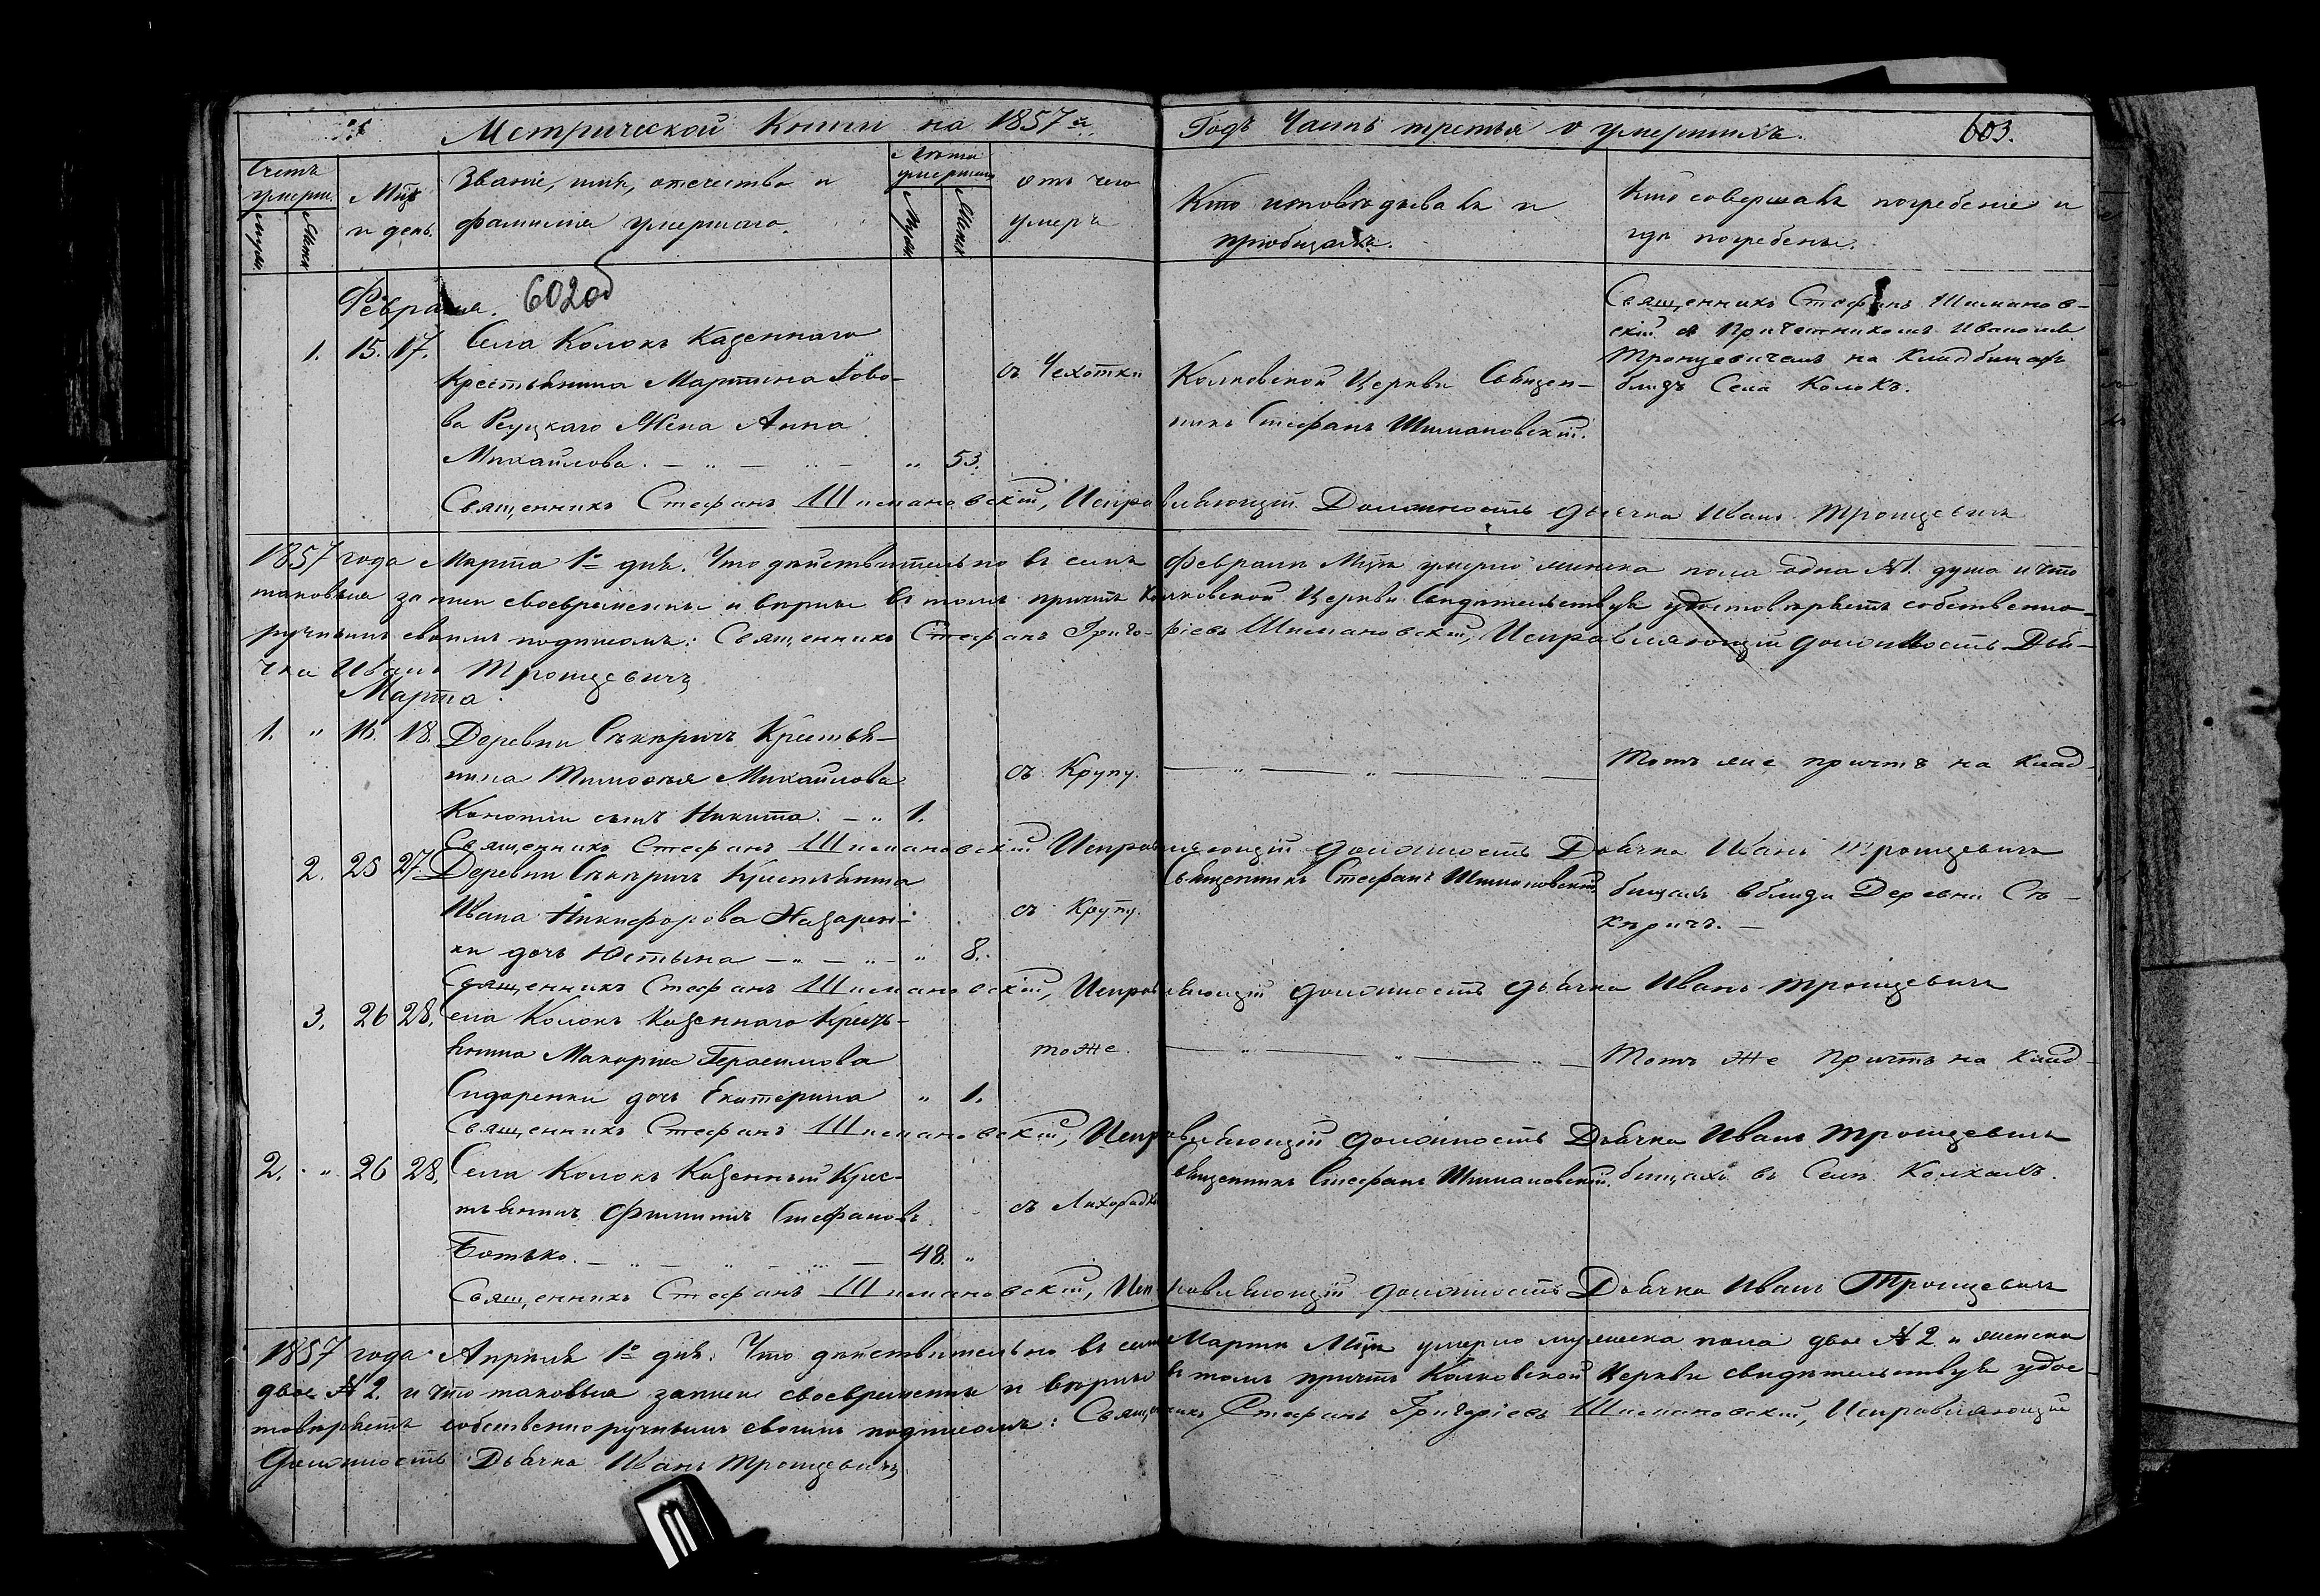 Метрической Книги на 1857й Годъ Часть третья о умершихъ. 603.
Счетъ умерш.
Мужс. Женск.
Мцъ и день.
Званіе, имя, отечество и
фамилія умершаго.
Лѣта умершихъ
Мужс. Женск.
отъ чего
умеръ
Кто исповѣдывалъ и
пріобщалъ.
Кто совершалъ погребеніе и
гдѣ погребены.
Февраля. 602об
1. 15. 17. Села Колокъ Казеннаго
крестьянина Мартина Іово-
ва Реуцкаго Жена Анна
Михайлова. — „ — „ — „ 53.
съ Чехотки
Колковской Церкви Священ-
никъ Стефанъ Шимановскій.
Священникъ Стефанъ Шиманов-
скій съ Причетникомъ Иваномъ
Тронцевичемъ на Кладбищахъ
близъ Села Колокъ.
Священникъ Стефанъ Шимановскій, Исправляющій Должность дьячка Иванъ Тронцевичъ
1857 года Марта 1го дня. Что дѣйствительно въ семъ Февралѣ Мцѣ умерло женска пола одна №1. душа и что
таковыя записи своевременны и вѣрны въ томъ причтъ Колковской Церкви свидѣтельствуя удостовѣряетъ собственно-
ручнымъ своимъ подписомъ: Священникъ Стефанъ Григо-ріевъ Шимановскій, Исправляющій должность Дья-
чка Иванъ Тронцевичъ
Марта
1. „ 16. 18. Деревни Сѣкѣричъ Крестья-
нина Тимофея Михайлова
сынъ Никита. — „ 1.
съ Крупу.
— „ — „ — „ —
Тотъ же причтъ на клад-
Священникъ Стефанъ Шимановскій Исправляющій должность Дьячка Иванъ Тронцевичъ
2. 25 27. Деревни Сѣкѣричъ Крестьянина
Ивана Никифорова Назарен-
ки дочь Юстына — „ — „ — „ 8.
съ Крупу.
Священникъ Стефанъ Шимановскій.
бищахъ вблизи Деревни Сѣ-
кѣричъ. —
Священникъ Стефанъ Шимановскій, Исправляющій должность дьячка Иванъ Тронцевичъ
3. 26 28. Села Колокъ Казеннаго Кресть-
янина Макарія Герасимова
Сидоренки дочь Екатерина „ 1.
тоже.
— „ — „ — „ —
Тотъ же Причтъ на Клад-
Священникъ Стефанъ Шимановскій, Исправляющій должность Дьячка Иванъ Тронцевичъ
2. „ 26 28. Села Колокъ Казенный Крес-
тьянинъ Филиппъ Стефановъ
Ботько. — „ — „ — „ — 48. „
съ Лихорадки
Священникъ Стефанъ Шимановскій.
бищахъ въ Селѣ Колкахъ.
Священникъ Стефанъ Шимановскій, Исправляющій должность Дьячка Иванъ Тронцевичъ
1857 года Апрѣля 1го дня. Что дѣйствительно въ семъ Мартѣ Мцѣ умерло мужеска пола двое №2. и женска
двое №2. и что таковыя записи своевременны и вѣрны въ томъ причтъ Колковской Церкви свидѣтельствуя удос-
товѣряетъ собственноручнымъ своимъ подписомъ: Священникъ Стефанъ Григоріевъ Шимановскій, Исправляющій
Должность Дьячка Иванъ Тронцевичъ